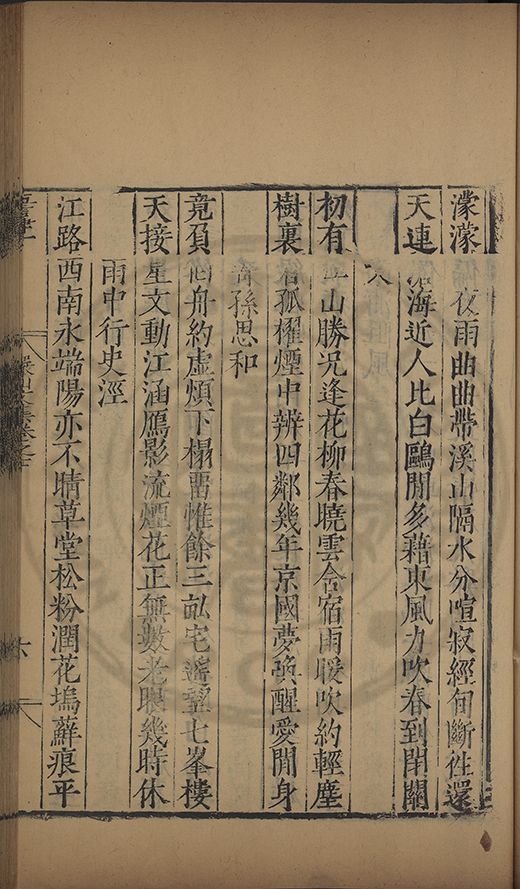 濛濛　夜雨曲曲帶溪山隔水分喧寂經旬斷往還
天連滄海近人比白鷗閒多藉東風力吹春到閉關
初有　山勝況逢花柳春曉雲含宿雨暖吹約輕塵
樹裏　孤櫂煙中辨四鄰幾年京國夢喚醒愛閒身
孫思和
竟負　舟約虛煩下榻畱惟餘三畝宅遙望七峯樓
天接星文動江涵鴈影流煙花正無數老眼幾時休
雨中行史涇
江路西南永端陽亦不晴草堂松粉潤花塢蘚痕平